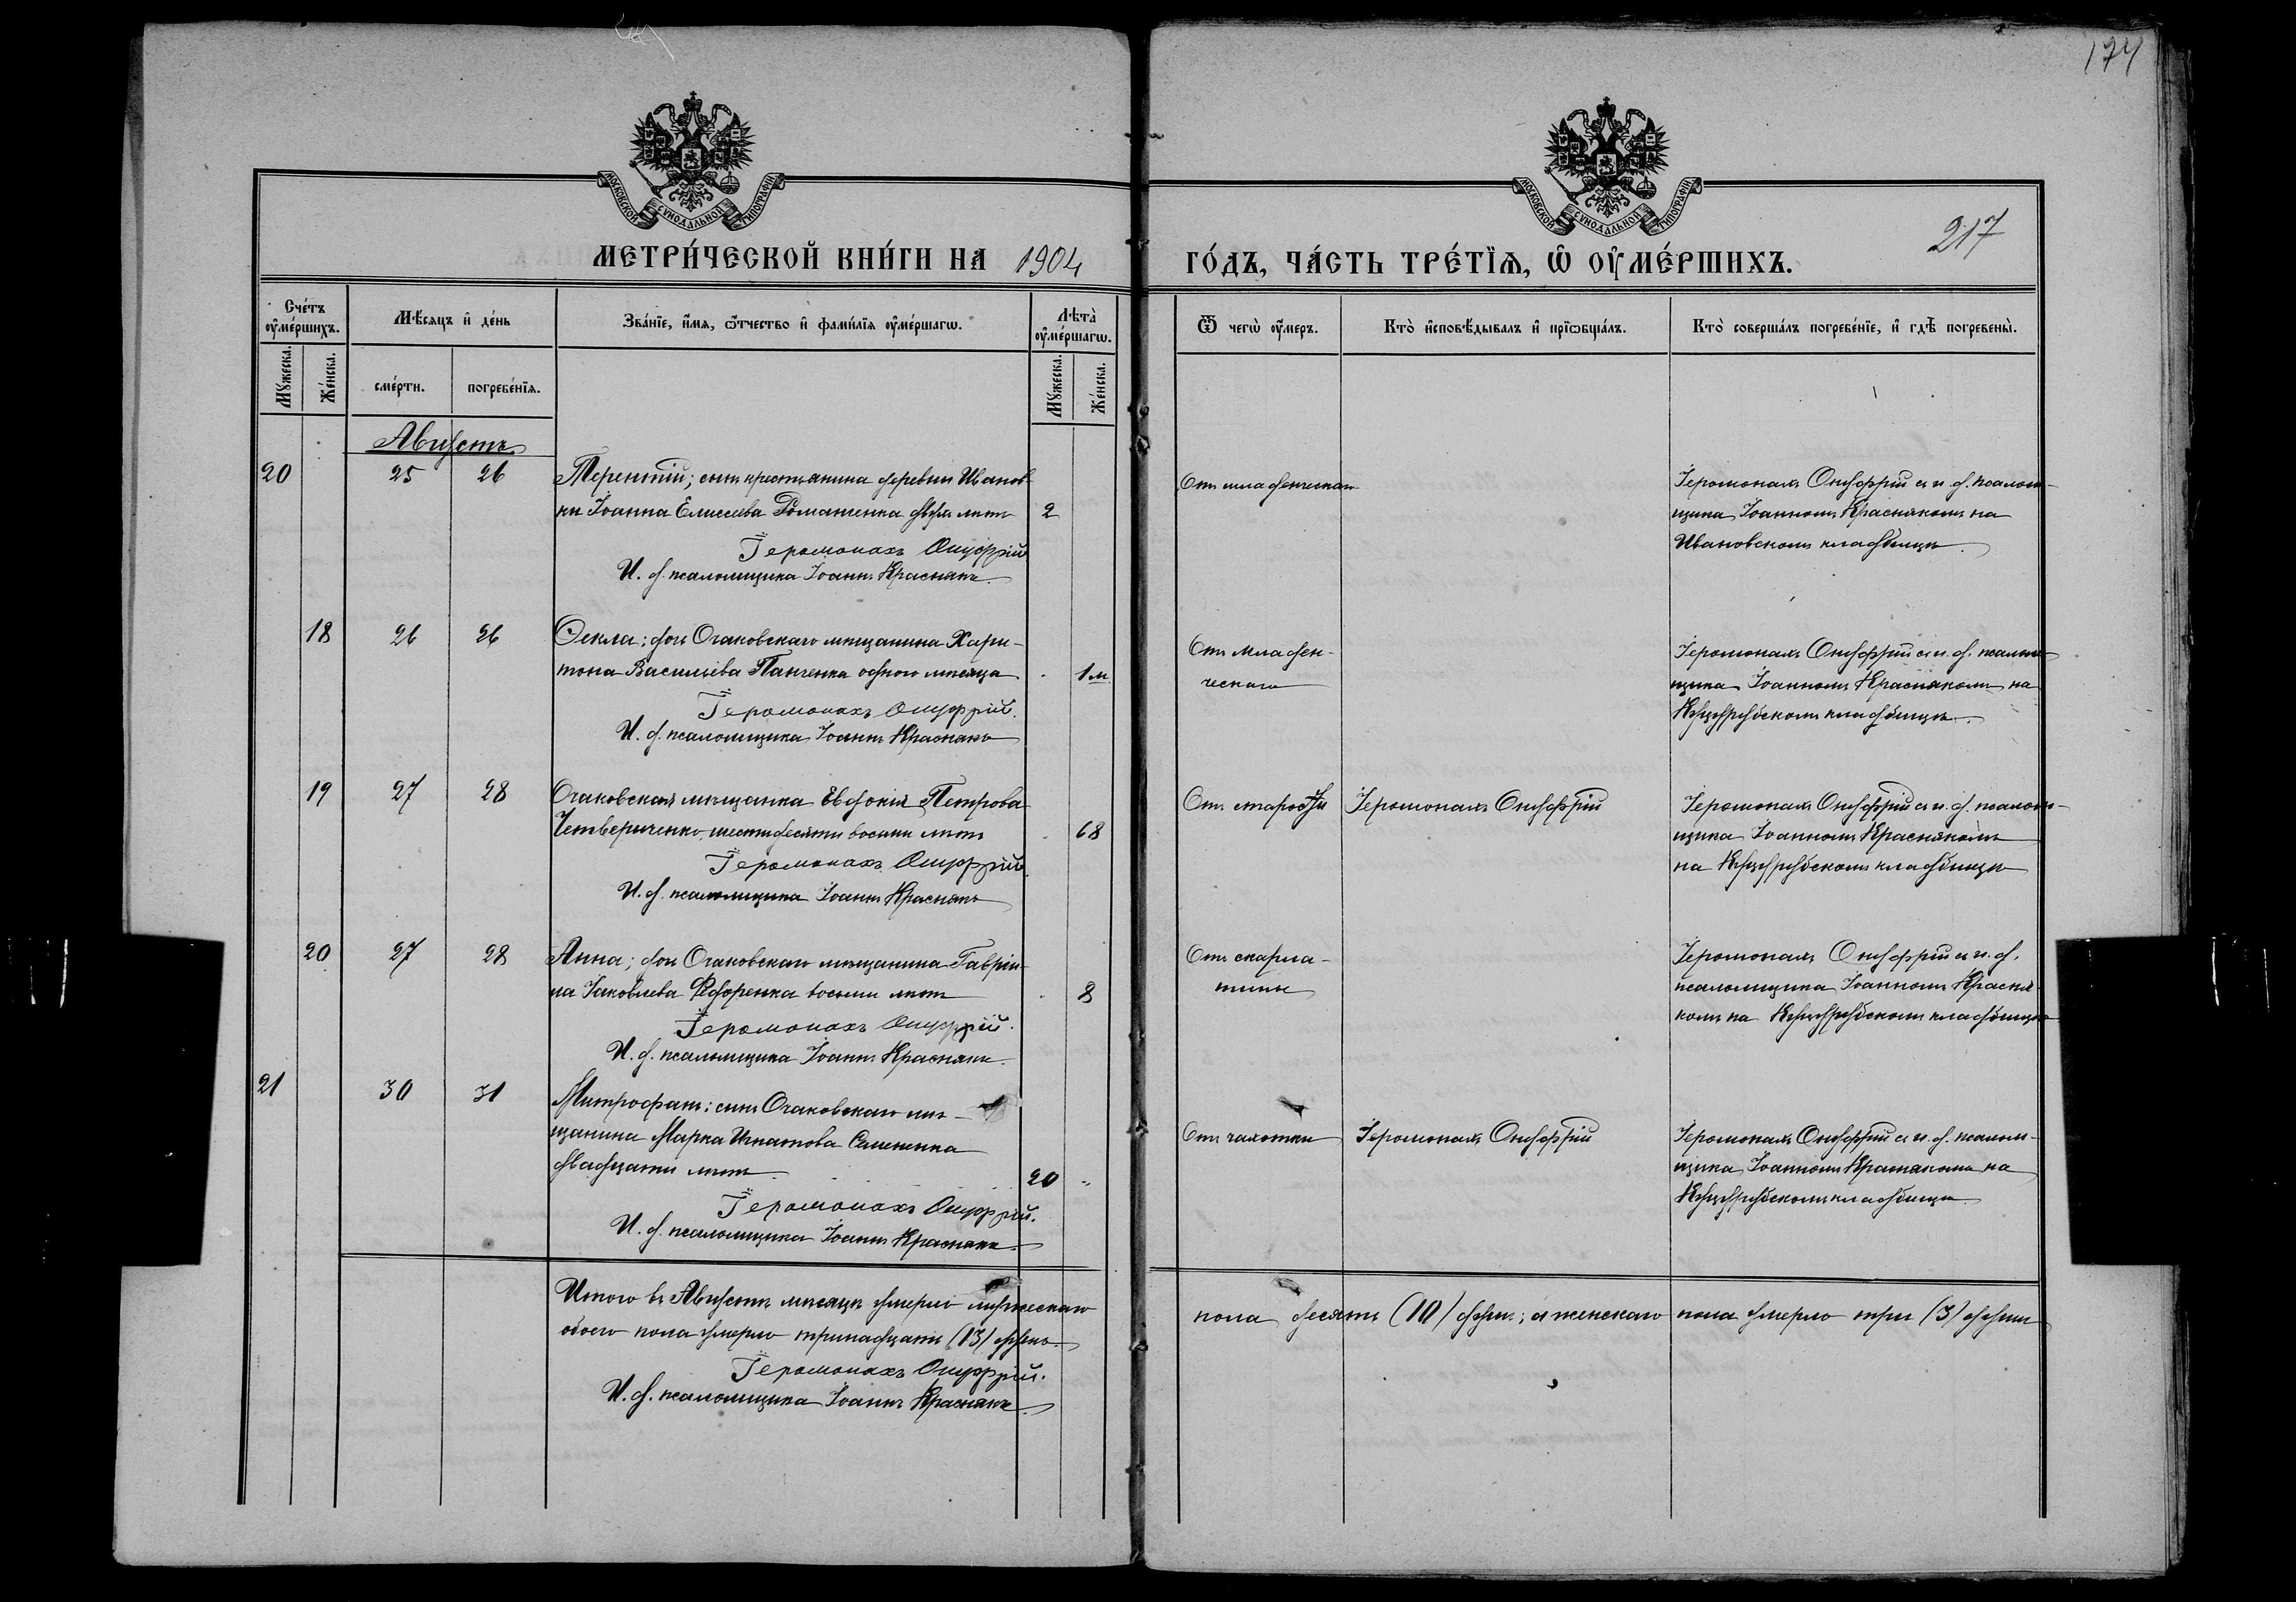 174
217
МОСКОВСКОЙ СУНОДАЛЬНОЙ ТИПОГРАФІИ
МОСКОВСКОЙ СУНОДАЛЬНОЙ ТИПОГРАФІИ
МЕТРИ́ЧЕСКОЙ КНИ́ГИ НА 1904 ГО́ДЪ, ЧА́СТЬ ТРЕ́ТІѦ, Ѡ ОУ҆МЕ́РШИХЪ.
Сче́тъ оу҆ме́ршихъ.
Мꙋ́жеска.
Же́нска.
Мѣ́сяцъ и҆ де́нь
сме́рти.
погребе́нїѧ.
Зва́нїе, и҆́мѧ, ѻ҆́тчество и҆ фамѝлїѧ оу҆ме́ршагѡ.
Лѣ́та оу҆ме́ршагѡ.
Мꙋ́жеска.
Же́нска.
Ѿ чегѡ̀ оу҆́меръ.
Кто̀ и҆сповѣ́дывалъ и҆ прїѡбща́лъ.
Кто̀ соверша́лъ погребе́нїе, и҆ гдѣ̀ погребены̀.
Августъ
20 25 26 Терентій; сынъ крестьянина деревни Иванов-
ки Іоанна Елисеева Романченка двухъ лѣтъ 2
Іеромонахъ Онуфрій
И. д. псаломщика Іоаннъ Краснякъ.
Отъ младенческаго
Іеромонахъ Онуфрій съ и. д. псалом-
щика Іоанномъ Краснякомъ на
Ивановскомъ кладбищѣ.
18 26 26 Ѳекла; дочь Очаковскаго мѣщанина Хари-
тона Васильева Панченка одного мѣсяца 1 м
Іеромонахъ Онуфрій.
И. д. псаломщика Іоаннъ Краснякъ
Отъ младен-
ческаго
Іеромонахъ Онуфрій съ и. д. псалом-
щика Іоанномъ Краснякомъ на
Куцурубскомъ кладбищѣ.
19 27 28 Очаковская мѣщанка Евдокія Петрова
Четвериченко, шестидесяти восьми лѣтъ 68
Іеромонахъ Онуфрій.
И. д. псаломщика Іоаннъ Краснякъ
Отъ старости Іеромонахъ Онуфрій
Іеромонахъ Онуфрій съ и. д. псалом-
щика Іоанномъ Краснякомъ
на Куцурубскомъ кладбищѣ
20 27 28 Анна; дочь Очаковскаго мѣщанина Гавріи-
ла Іаковлева Федоренка восьми лѣтъ 8
Іеромонахъ Онуфрій.
И. д. псаломщика Іоаннъ Краснякъ.
Отъ скарла-
тины
Іеромонахъ Онуфрій съ и. д.
псаломщика Іоанномъ Красня-
комъ на Куцурубскомъ кладбищѣ
21 30 31 Митрофанъ; сынъ Очаковскаго мѣ-
щанина Марка Игнатова Семененка
двадцати лѣтъ 20 "
Іеромонахъ Онуфрій.
И. д. псаломщика Іоаннъ Краснякъ.
Отъ чахотки Іеромонахъ Онуфрій
Іеромонахъ Онуфрій съ и. д. псалом-
щика Іоанномъ Краснякомъ на
Куцурубскомъ кладбищѣ
Итого въ Августѣ мѣсяцѣ умерло мужескаго пола десять (10) душъ; а женскаго пола умерло три (3) души
обоего пола умерло тринадцать (13) душъ.
Іеромонахъ Онуфрій.
И. д. псаломщика Іоаннъ Краснякъ